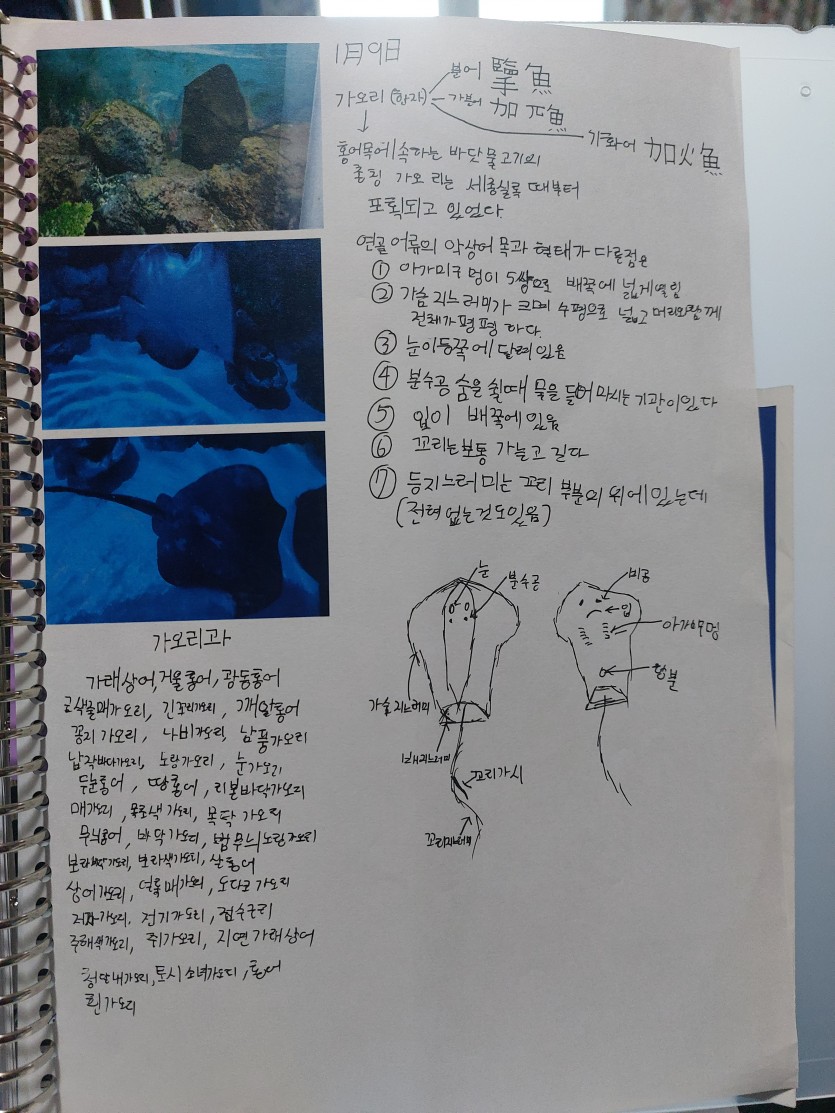 1月9日
가오리 (한자)
분어
가분어
가화어 加火魚
홍어목에 속하는 바닷물고기의
총칭 가오리는 세종실록 때부터
포획되고 있었다.
연골어류의 악상어목과 형태가 다른점은
① 아가미구멍이 5쌍으로 배쪽에 넓게열림
② 가슴지느러미가 크며 수평으로 넓고 머리와함께
전체가 평평 하다.
③ 눈이등쪽에 달려있음
④ 분수공 숨을 쉴때 물을 들어마시는 기관이있다
⑤ 입이 배쪽에있음
⑥ 꼬리는보통 가늘고 길다
⑦ 등지느러미는 꼬리 부분의 위에있는데
(전혀없는것도있음)
눈
분수공
가슴지느러미
배지느러미
꼬리가시
꼬리지느러미
비공
입
아가미구멍
가오리과
가래상어, 거울홍어, 광동홍어
긴꼬리가오리,
꽁지가오리, 나비가오리,
노랑가오리, 눈가오리
두분홍어, 땅홍어, 리본바닥가오리
매가오리, 목탁 가오리
무늬홍어, 바닥가오리, 범무늬노랑가오리
보라색가오리, 살홍어
상어가오리, 얼룩매가오리, 도다리 가오리
전기가오리,
쥐가오리,
홍어
흰가오리